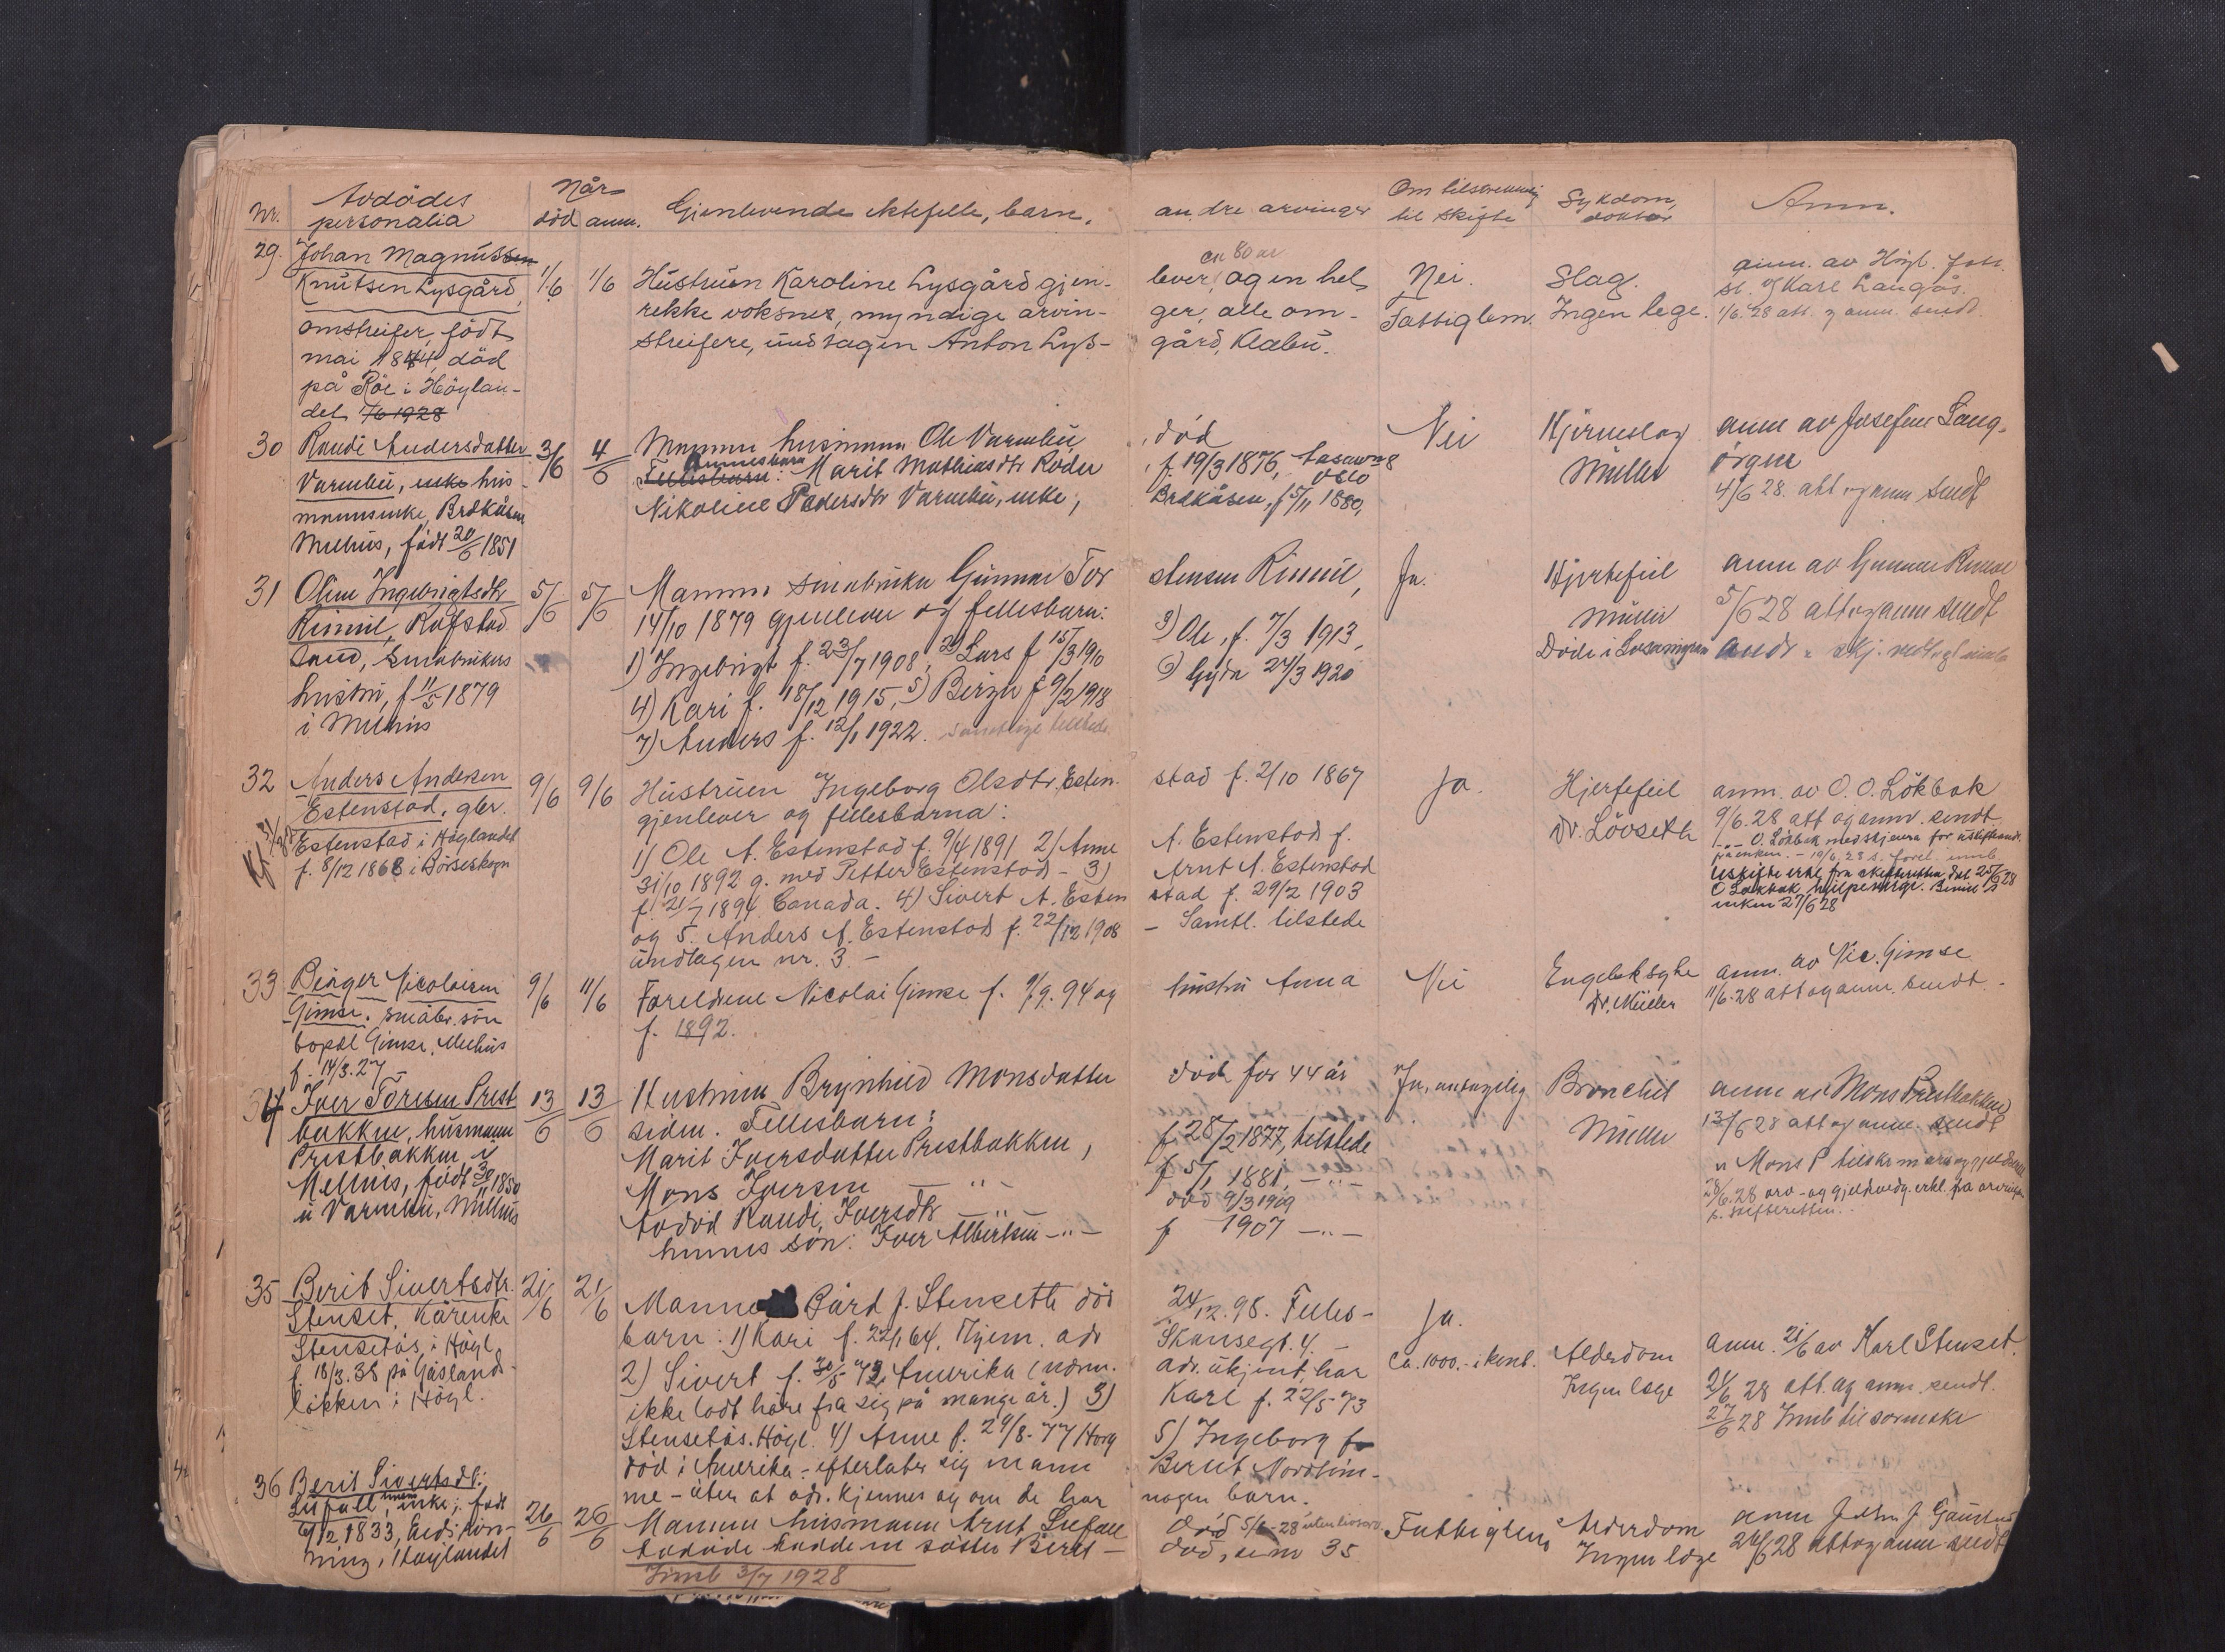 Nr. Avdødes personalia Når død anm. Gjenlevende ektefelle, barn, andre arvinger Om tilstrekkelig til skifte Sykdom, doktor Anm.
29. Johan Magnus
Knutsen Lysgård,
omstreifer, født
mai 1844, död
på Röe i Höylan-
det 1/6 1928
1/6 1/6
Hustruen Karoline Lysgård gjen-
rekke voksner, myndige arvin-
streifere, undtagen Anton Lys-
ca 80 år
lever, og en hel
ger, alle om-
gård, Klæbu.
Nei.
Fattiglem.
Slag.
Ingen lege.
anm. av Högl.
Karl Langås.
1/6. 28 att. og anm. sendt.
30 Randi Andersdatter
Varmbu, hus-
mannsenke, Brekkåsen
Melhus, født 20/6 1851
3/6 4/6
Mannen husmann Ole Varmbu
Marit Mathiasdtr
Nikoline Pedersdtr Varmbu, enke,
død
f. 19/3 1876,
Oslo
Brekkåsen, f 5/11 1880,
Nei
Hjerneslag
Müller
anm av Josefine Lang-
örgen
4/6 28. att og anm sendt
31 Oline Ingebrigtsdtr
Rimul, Rofstad
sand, småbrukers
hustru, f 11/5 1879
i Melhus
5/6 5/6
Mannen småbruker Gunnar Tor
14/10 1879 gjenlever og fellesbarn:
1) Ingebrigt f. 23/7 1908, 2) Lars f 15/3 1910
4) Kari f. 18/12 1915, 5) Berge f 9/2 1918
7) Anders f. 12/1 1922. samtlige tilstede
stensen Rimul,
3) Ole, f. 7/3 1913,
6) Gyda 24/3 1920
Ja.
Hjertefeil
Müller
Döde i
anm av Gunnar Rimul
5/6 28 att og anm sendt
32 Anders Andersen
Estenstad, gbr.
Estenstad i Höylandet
f. 8/12 1868 i Börseskogn
9/6 9/6
Hustruen Ingeborg Olsdtr. Esten-
gjenlever og fellesbarna:
1) Ole A. Estenstad f. 9/4 1891 2) Anne
31/10 1892 g. med Petter Estenstad - 3)
f. 21/7 1894 Canada. 4) Sivert A. Esten
og 5. Anders A. Estenstad f. 22/12 1908
undtagen nr. 3. -
stad f. 2/10 1867
A. Estenstad f.
Arnt A. Estenstad
stad f. 29/2 1903
- Samtl. tilstede
Ja.
Hjertefeil
Dr. Lövseth
anm. av O. O. Lökbak
9/6. 28 att og anm. sendt
O. Lökbak
enken 27/6 28
33 Birger Nicolaisen
Gimse. småbr. sön
bopæl Gimse, Melhus
f. 14/3. 27 -
9/6 11/6
Foreldrene Nicolai Gimse f. 9/9. 94 og
f. 1892.
hustru Anna
Nei
Engelsk syke
Dr. Müller
anm. av Nic. Gimse
11/6. 28 att og anm. sendt. -
34 Iver Toresen Prest
bakken, husmann
Prestbakken i
Melhus, født 30/11 1850
i Varmbu, Melhus
13/6 13/6
Hustruen Brynhild Monsdatter
siden. Fellesbarn:
Marit Iversdatter Prestbakken,
Mons Iversen - " -
Avdød Randi Iversdtr - " -
hennes sön: Iver Albertsen - " -
död for 44 år
f 28/2 1877, tilstede
f 5/1 1881, - " -
död 9/3 1909
f 1907 - " -
Ja, antagelig
Bronchit
Müller
anm av Mons Prestbakken
13/6 28 att og anm. sendt
28/6. 28 arv- og gjeldsvedg. erkl. fra arvingene
35 Berit Sivertsdtr.
Stenset, kårenke
Stensetås i Högl.
f. 18/3. 38 på Gåslands-
lökken i Högl.
21/6 21/6
Mannen Bård J. Stenseth död
barn: 1) Kari f. 22/1 64, Hjem. adr
2) Sivert f. 30/5 72, Amerika (
ikke latt höre fra sig på mange år.) 3)
Stensetås. Högl. 4) Anne f. 29/8. 77 Horg
död i Amerika - efterlater sig mann
me - uten at adr. kjennes og om de har
24/12. 98. Felles-
Skansegt. 4. -
adr. ukjent, har
Karl f. 22/5 73
5) Ingeborg
Bernt Nordtöm-
nogen barn.
Ja.
ca. 1000.- i kont.
Alderdom
Ingen lege
anm. 21/6 av Karl Stenset.
21/6 28 att. og anm. sendt.
27/6 28 Innb til
36 Berit Sivertsdtr.
enke, født
1833,
i Höylandet
26/6 26/6
Mannen husmann Arnt
Avdöde hadde en söster Beret -
Innb 3/7 1928
Död
död, se nr 35
Fattiglem
Alderdom
Ingen lege
anm
26/6 28 att og anm sendt